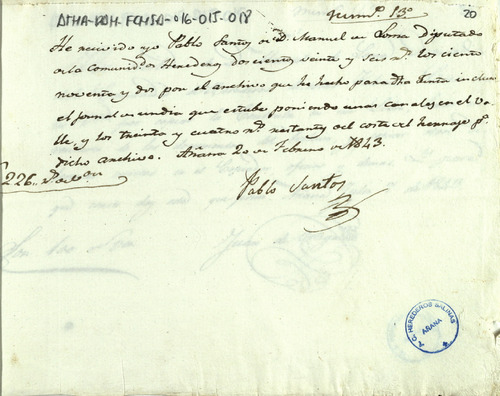 ATHA-DAH-FCHSA-016-015-018
Num.º 13º
20
He recivido yo Pablo Santos de D. Manuel de Loma Diputado
de la Comunidad Herederos doscientos veinte y seis rs. los ciento
noventa y dos por el archivo que he hecho para dha Junta incluso
el jornal de un dia que estube poniendo unas canales en el Va
lle, y los treinta y cuatro rs. restantes del coste del herraje pa.
dicho archivo. Añana 20 de Febrero de 1843.
226..
Pablo Santos
T. C. HEREDEROS SALINAS
AÑANA